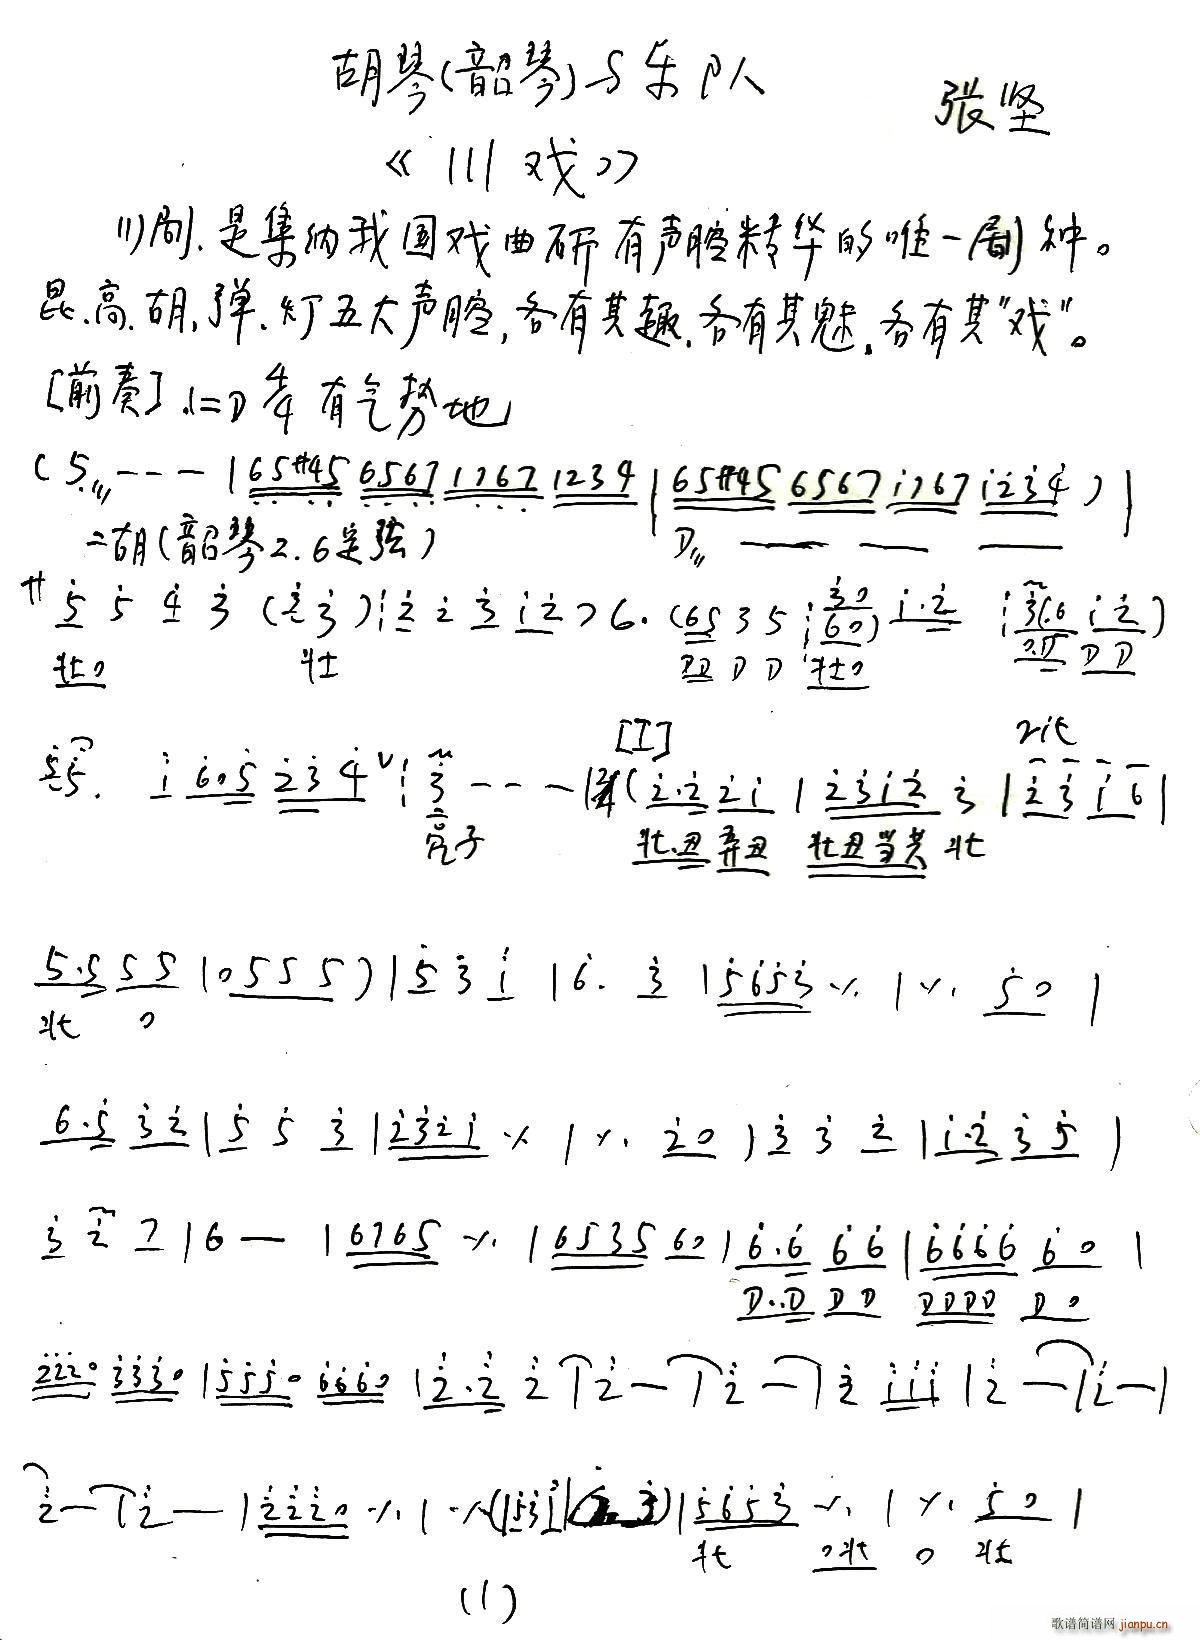 胡琴(韶琴)与乐队
张坚
《川戏》
川剧.是集纳我国戏曲所有声腔精华的唯一剧种。
昆.高.胡.弹.灯五大声腔,各有其趣.各有其魅.各有其"戏"。
[前奏].1=D 4/4 有气势地
(5 - - - | 65#45 6567 1767 1234 | 65#45 6567 1767 1234) |
二胡(韶琴2.6定弦) D
サ 5 5 4 3 (2 3) 2 2 3 1 2 7 6. (65 3 5 60) 1.2 1 2)
壮0 壮 DD D D 壮0 0.D D D
[I] rit
55. 1 6 0 5 2 3 4 ∨ 3 - - - | 2/4 (2.2 21 | 2312 3 | 2 3 1 6 |
亮子 壮.丑 弄丑 壮丑当共 壮
5.5 5 5 | 0 5 5 5) | 5 3 1 | 6. 3 | 5653 ٪ | ٪ 5 0 |
壮 0
6.5 3 2 | 5 5 3 | 2321 ٪ | ٪ 2 0 | 3 3 2 | 1.2 3 5 |
3 2 7 | 6 — | 6765 ٪ | 6535 60 | 6.6 66 | 6666 6 0 |
D..D DD DDDD D 0
2220 3330 | 5550 6660 | 2.2 2 | 2 — | 2 — | 2 111 | 2 — | 2 — |
2 — | 2 — | 2220 ٪ | ٪ (| 531 | | 5653 ٪ | ٪ 5 0 |
壮 0壮 0 壮
(1)
歌谱简谱网 jianpu.cn